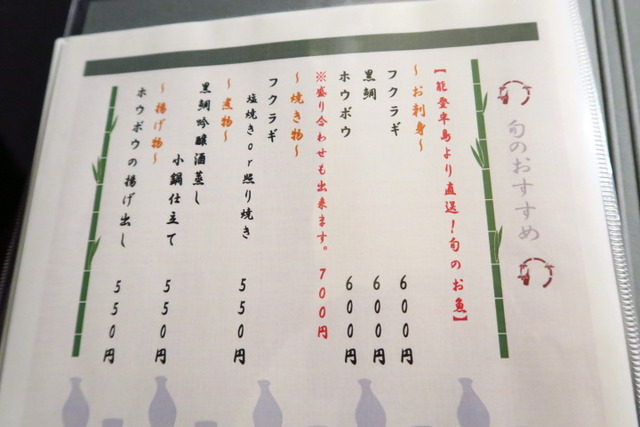 旬のおすすめ
【能登半島より直送！旬のお魚】
～お刺身～
フクラギ 600円
黒鯛 600円
ホウボウ 600円
※盛り合わせも出来ます。700円
～焼き物～
フクラギ
塩焼きor照り焼き 550円
～煮物～
黒鯛吟醸酒蒸し
小鍋仕立て 550円
～揚げ物～
ホウボウの揚げ出し 550円